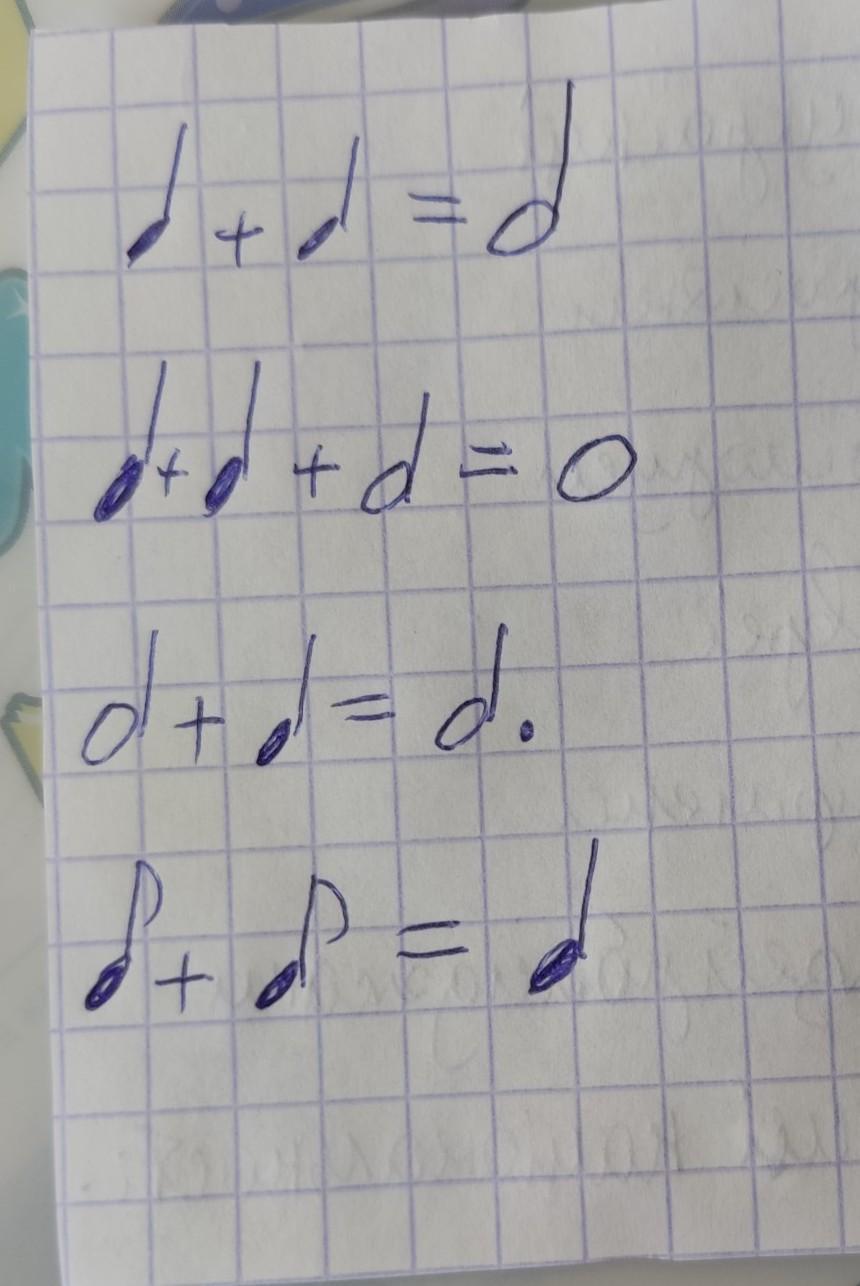 ♩ + ♩ = 𝅗𝅥
♩ + ♩ + 𝅗𝅥 = 𝅝
𝅗𝅥 + ♩ = 𝅗𝅥.
♪ + ♪ = ♩